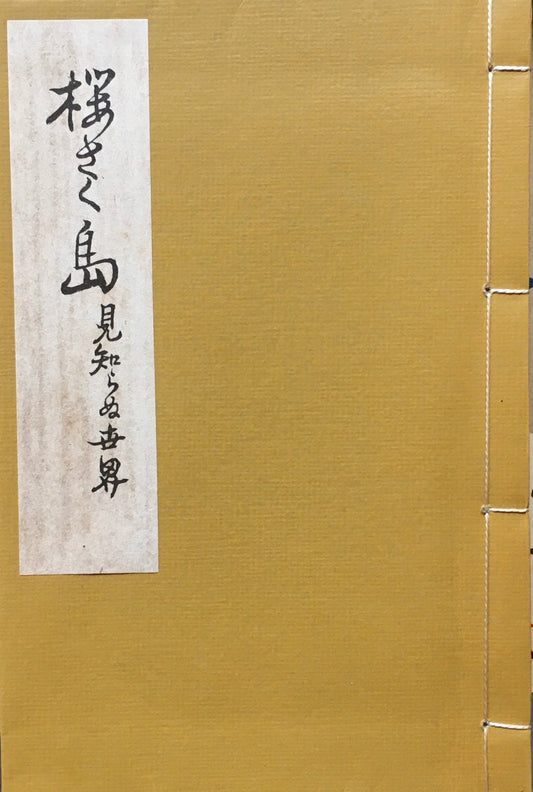 桜さく島
見知らぬ世界